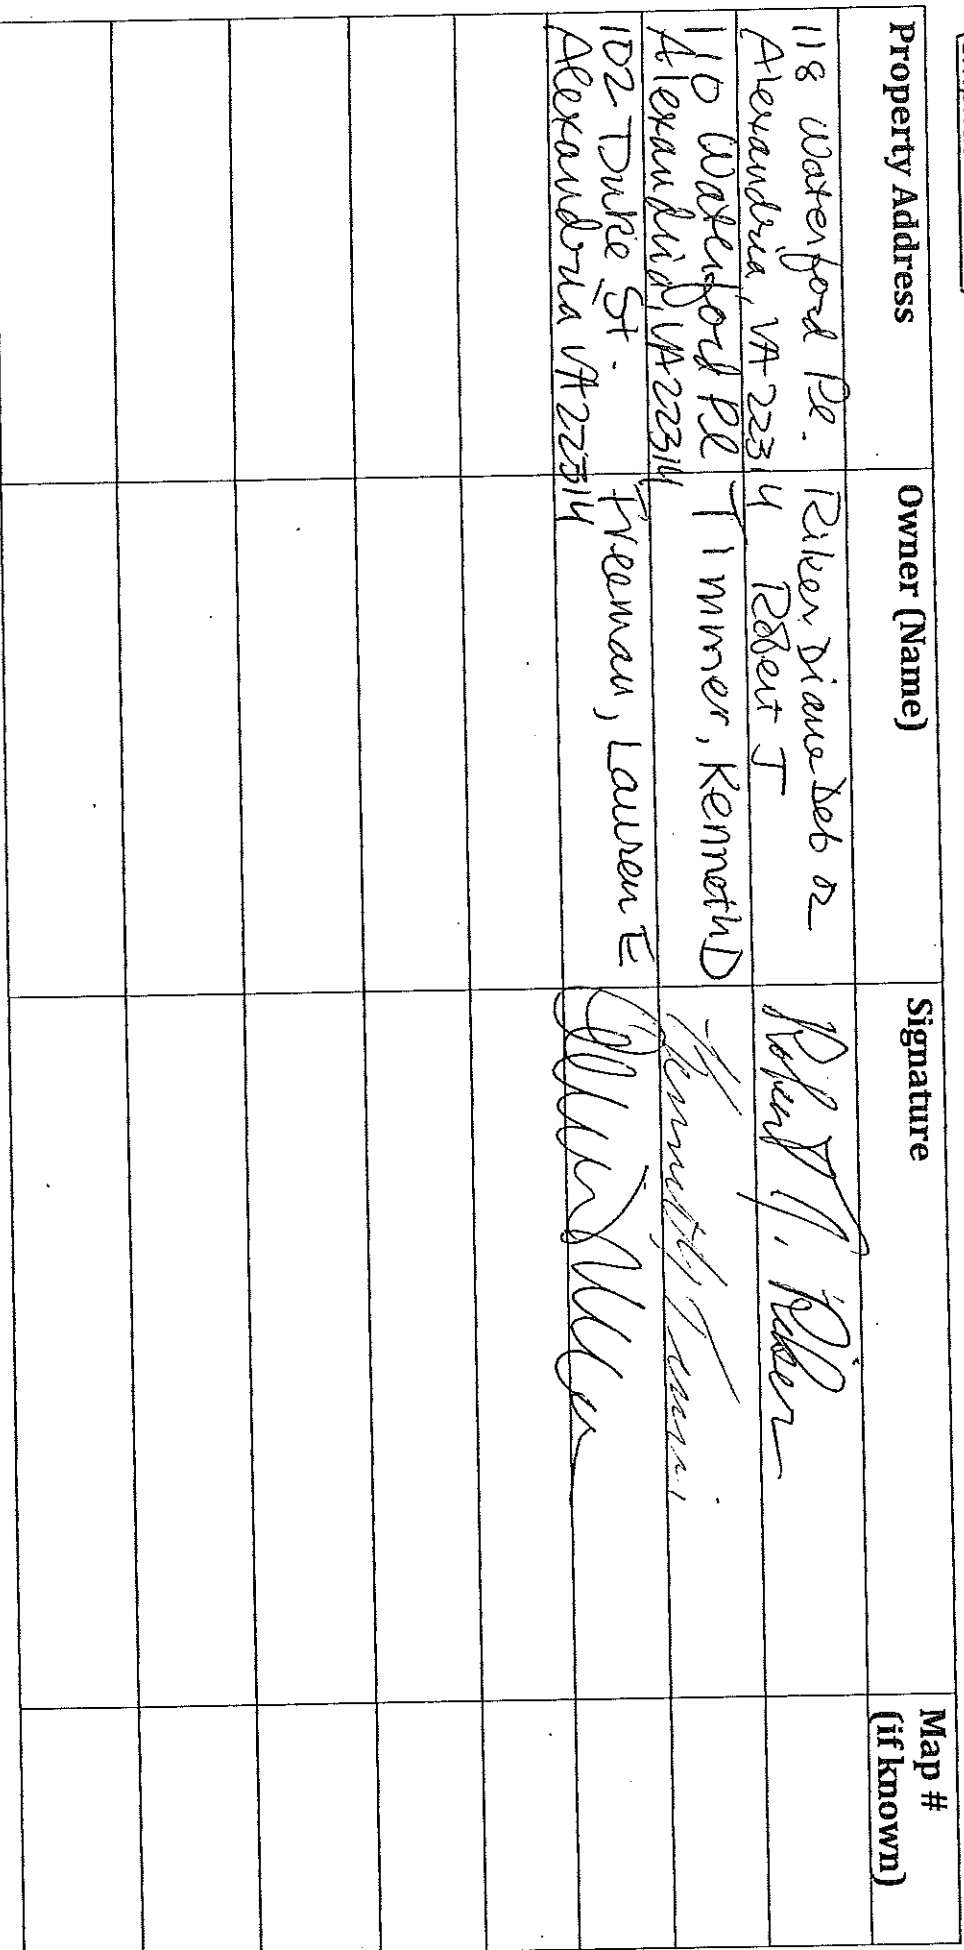 Property Address
Owner (Name)
Signature
Map #
(if known)
118 Waterford Pl.
Alexandria, VA 22314
Riker, Diane Deb or
Robert J
Robert J. Riker
110 Waterford Pl
Alexandria, VA 22314
Timmer, Kenneth D
Kenneth
102 Duke St.
Alexandria VA 22314
Freeman, Lauren E